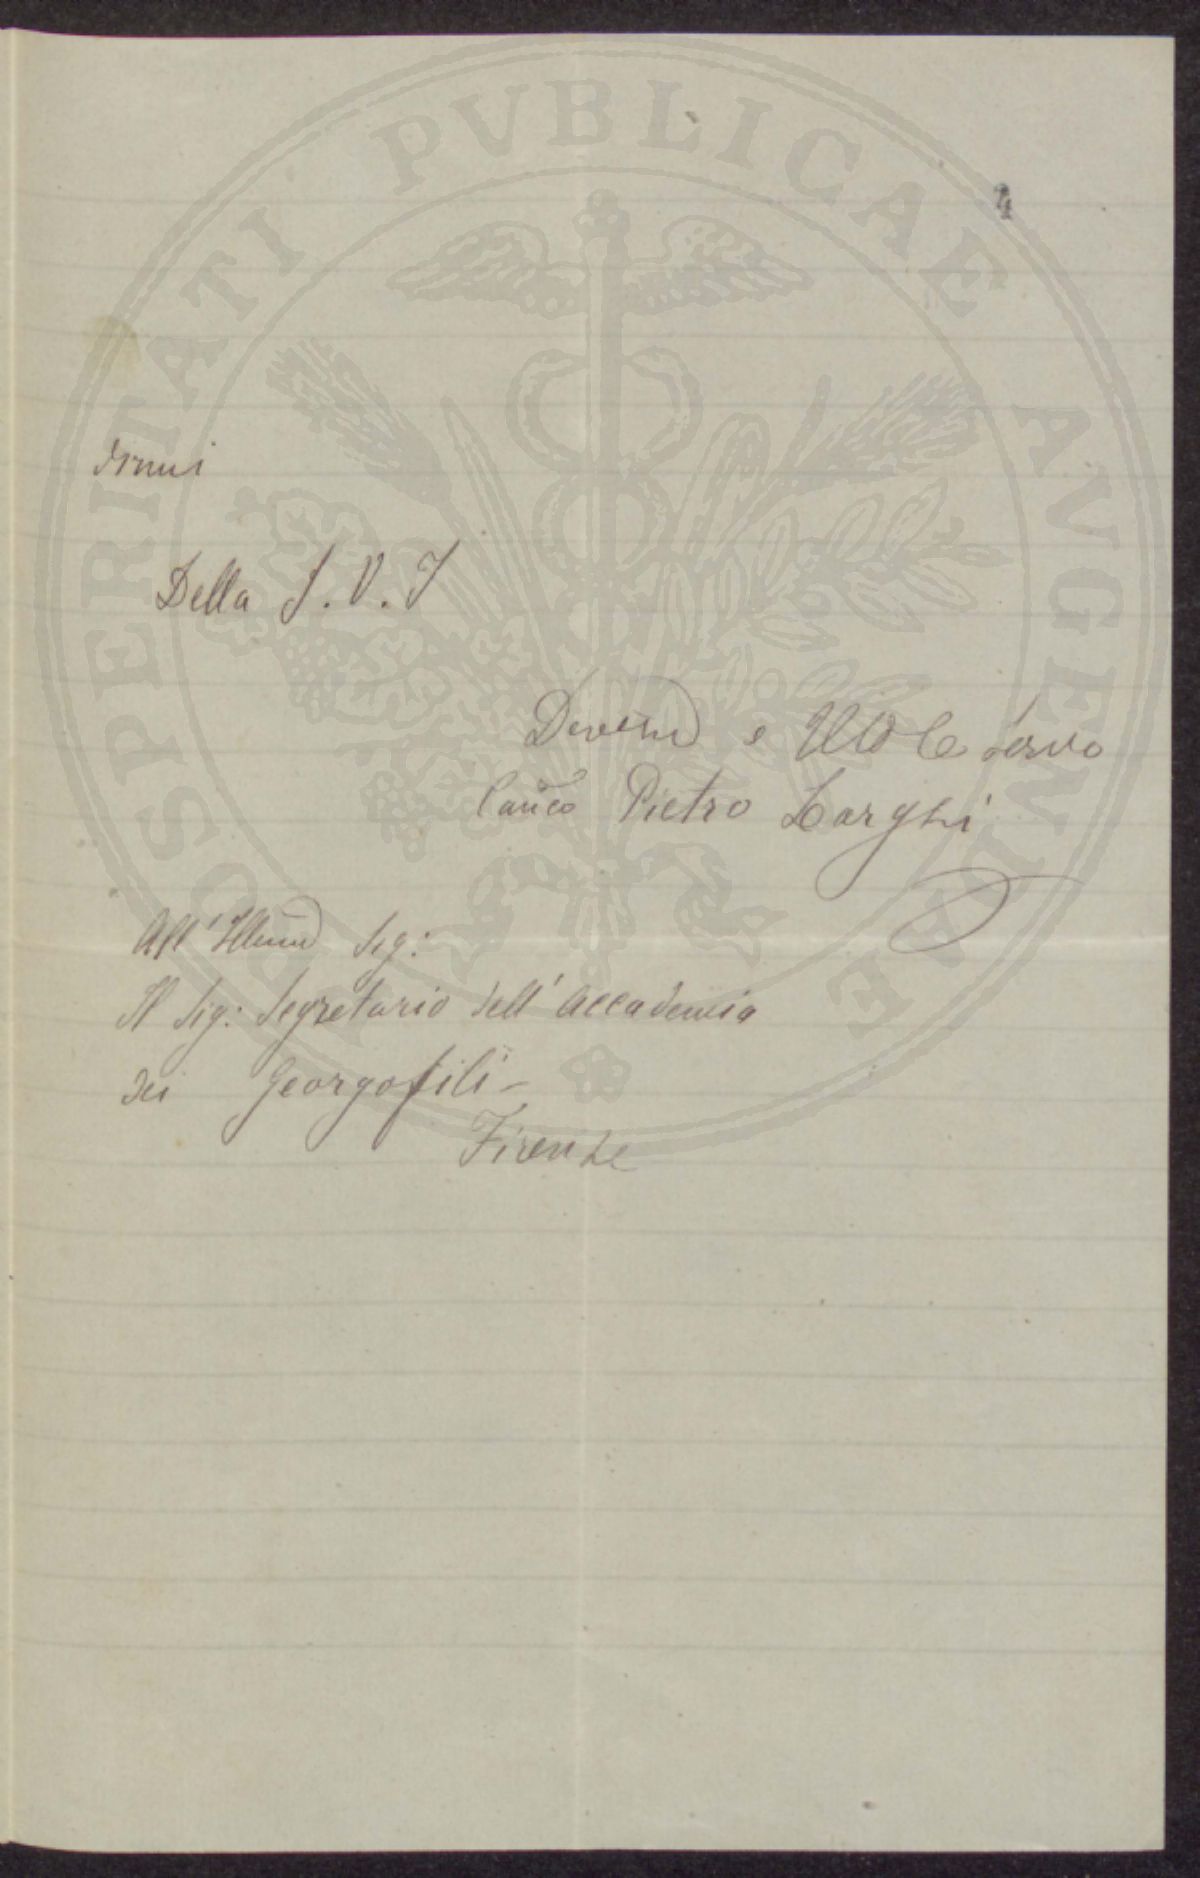 PROSPERITATI PVBLICAE AVGENDAE
4
dirmi
Della S. V. I
Devmo e
servo
Canco Pietro Larghi
All' Illmo Sig:
Il Sig: Segretario dell' Accademia
dei Georgofili -
Firenze